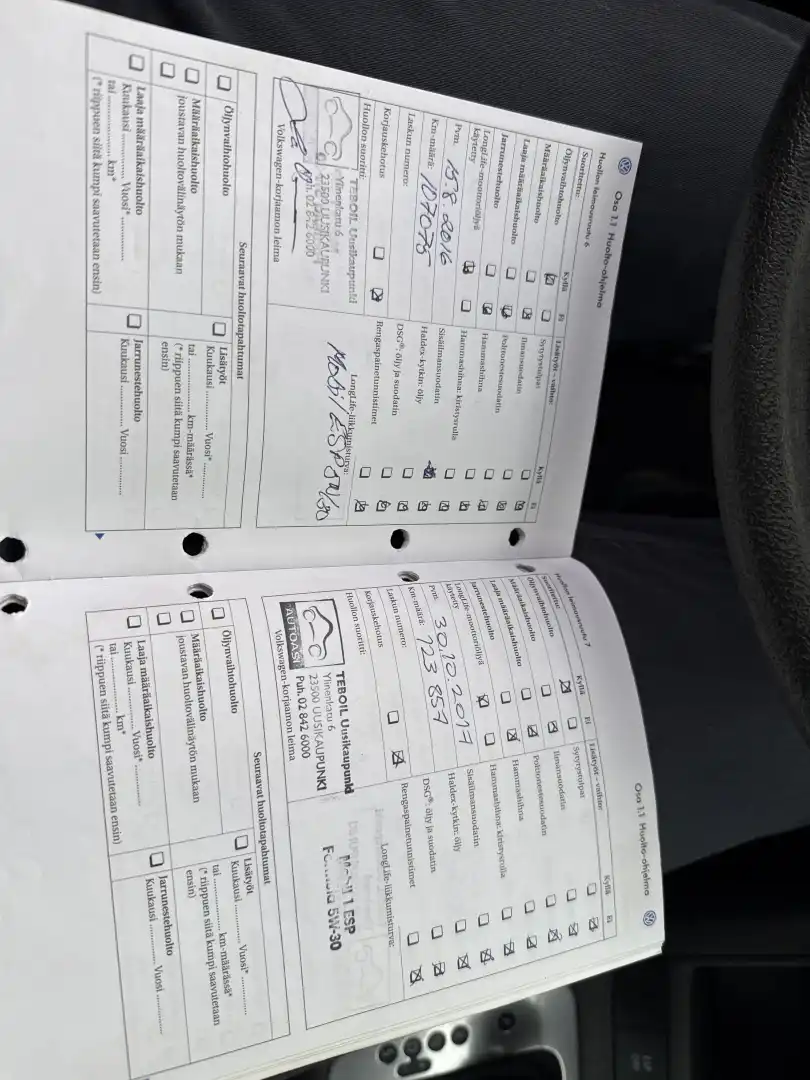 Osa 1.1 Huolto-ohjelma
Huollon leimavaraus 6
Suoritettu: Kyllä Ei
Öljynvaihtohuolto
Määräaikaishuolto
Laaja määräaikaishuolto
Jarrunestehuolto
LongLife-moottoriöljyä käytetty
Pvm. 15.8-2016
Km-määrä: 107075
Laskun numero:
Korjauskehotus
Huollon suoritti:
TEBOIL Uusikaupunki
Ylinenkatu 6
23500 UUSIKAUPUNKI
Puh. 02 842 6000
Volkswagen-korjaamon leima
Lisätyöt – vaihto: Kyllä Ei
Sytytystulpat
Ilmansuodatin
Polttonestesuodatin
Hammashihna
Hammashihna: kiristysrulla
Sisäilmansuodatin
Haldex-kytkin: öljy
DSG®: öljy ja suodatin
Rengaspainetunnistimet
LongLife-liikkumisturva:
Mobil ESP 5W/30
Seuraavat huoltotapahtumat
Öljynvaihtohuolto
Määräaikaishuolto
joustavan huoltovälinäytön mukaan
Laaja määräaikaishuolto
Kuukausi .................. Vuosi* ..................
tai .................. km*
(* riippuen siitä kumpi saavutetaan ensin)
Lisätyöt
Kuukausi .................. Vuosi* ..................
tai .................. km-määrässä*
(* riippuen siitä kumpi saavutetaan
ensin)
Jarrunestehuolto
Kuukausi .................. Vuosi ..................
Osa 1.1 Huolto-ohjelma
Huollon leimavaraus 7
Suoritettu: Kyllä Ei
Öljynvaihtohuolto
Määräaikaishuolto
Laaja määräaikaishuolto
Jarrunestehuolto
LongLife-moottoriöljyä
käytetty
Pvm: 30.10.2017
Km-määrä: 123 857
Laskun numero:
Korjauskehotus
Huollon suoritti:
TEBOIL Uusikaupunki
Ylinenkatu 6
23500 UUSIKAUPUNKI
Puh. 02 842 6000
AUTOASI
Volkswagen-korjaamon leima
Lisätyöt – vaihto: Kyllä Ei
Sytytystulpat
Ilmansuodatin
Polttonestesuodatin
Hammashihna
Hammashihna: kiristysrulla
Sisäilmansuodatin
Haldex-kytkin: öljy
DSG®: öljy ja suodatin
Rengaspainetunnistimet
LongLife-liikkumisturva:
Mobil 1 ESP
Formula 5W-30
Seuraavat huoltotapahtumat
Öljynvaihtohuolto
Määräaikaishuolto
joustavan huoltovälinäytön mukaan
Laaja määräaikaishuolto
Kuukausi .................. Vuosi* ..................
tai .................. km*
(* riippuen siitä kumpi saavutetaan ensin)
Lisätyöt
Kuukausi .................. Vuosi* ..................
tai .................. km-määrässä*
(* riippuen siitä kumpi saavutetaan
ensin)
Jarrunestehuolto
Kuukausi .................. Vuosi ..................